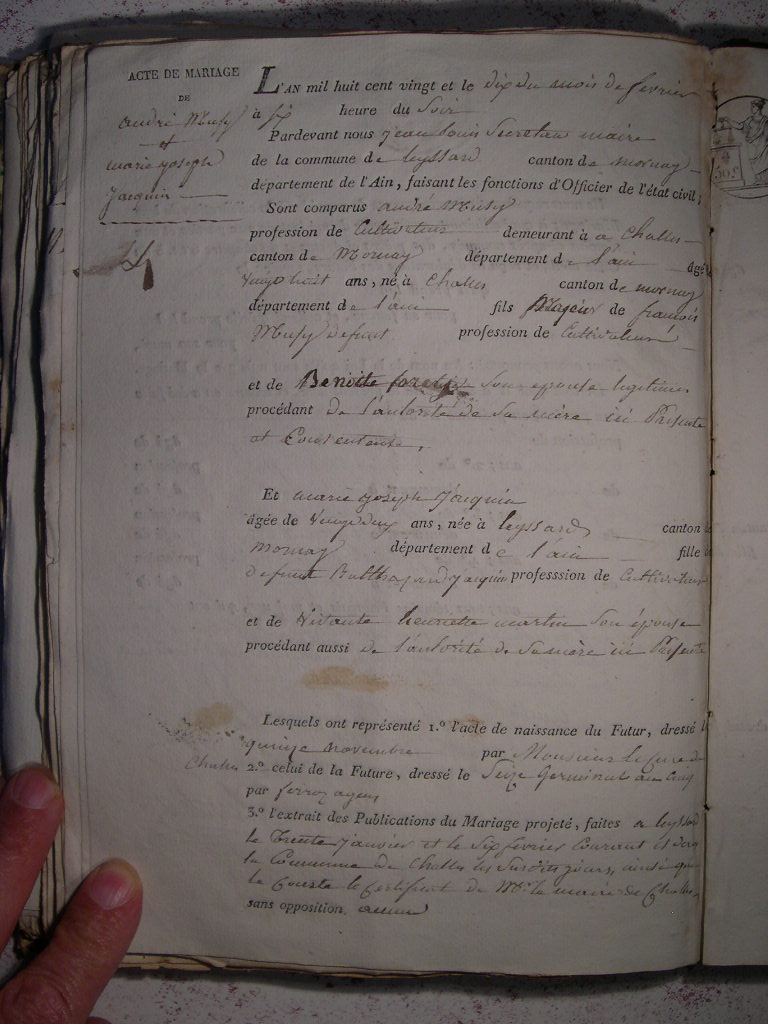 ACTE DE MARIAGE
DE
andré Musy
et
marie joseph
Jacquin
L'AN mil huit cent vingt et le dix du mois de fevrier
à six heure du Soir
Pardevant nous jean louis Secretan maire
de la commune de leyssard canton de mornay
département de l'Ain, faisant les fonctions d'Officier de l'état civil;
Sont comparus andré Musy
profession de Cultivateur demeurant à a Challes
canton de Mornay département de l'ain âgé
Vingt huit ans, né à Challes canton de mornay
département de l'ain fils Majeur de francois
Musy defunt profession de Cultivateur
et de Benoite Son épouse légitime
procédant De l'autorité de Sa mère ici Présente
et Consentente,
Et marie joseph Jacquin
âgée de Vingt deux ans, née à leyssard canton de
Mornay département de l'ain fille de
defunt Balthazard Jacquin professsion de Cultivateur
et de Vivante henriette martin Son épouse
procédant aussi de l'autorité de Sa mère ici Présente
Lesquels ont représenté 1.º l'acte de naissance du Futur, dressé le
quinze novembre par Monsieur le Curé de
Challes
2.º celui de la Future, dressé le Seize Germinal an cinq
par agent
3.º l'extrait des Publications du Mariage projeté, faites a leyssard
le Trente Janvier et le Six fevrier Courant et dans
la Commune de Challes les Susdits jours, ainsi que
le Conste le Certificat de Mr. le maire de Challes
sans opposition. aucune